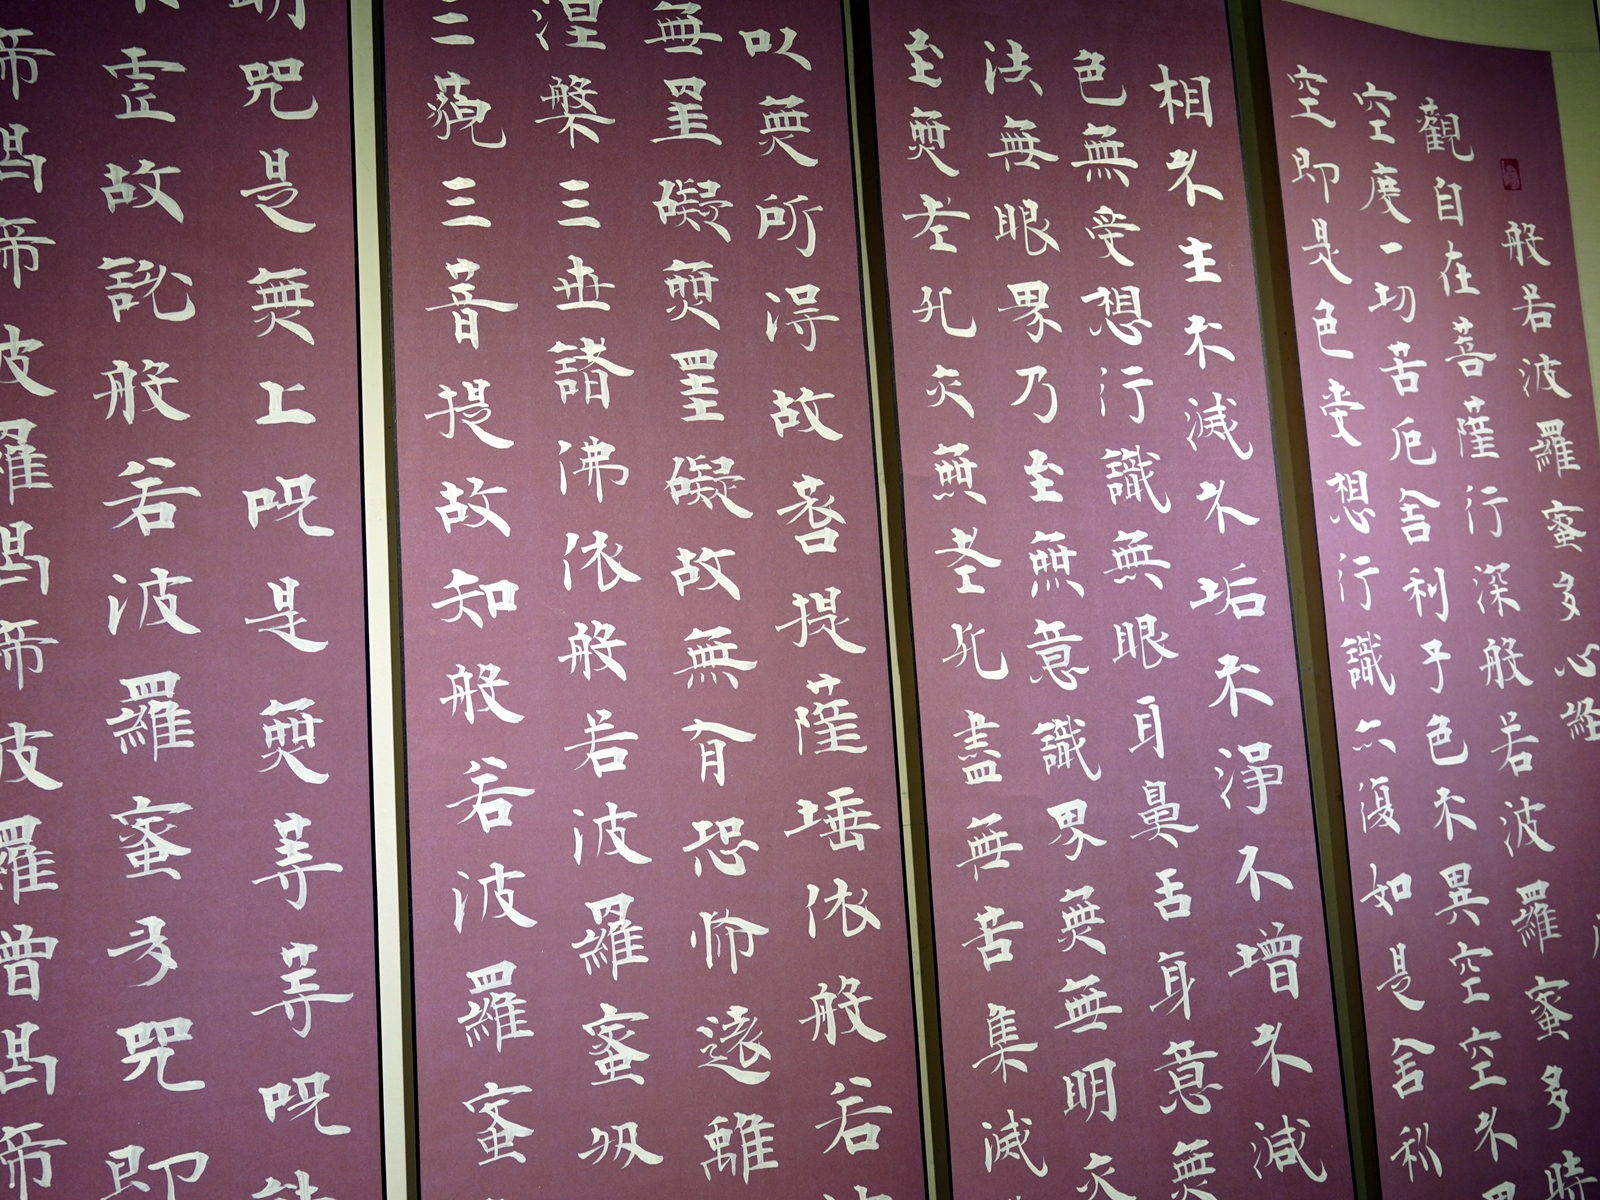 般若波羅蜜多心経
觀自在菩薩行深般若波羅蜜多時
空度一切苦厄舍利子色不異空空不異
空即是色受想行識亦復如是舍利
相不生不滅不垢不淨不增不減
色無受想行識無眼耳鼻舌身意無
法無眼界乃至無意識界無無明亦
至無老死亦無老死盡無苦集滅
以無所得故菩提薩埵依般若波
無罣礙無罣礙故無有恐怖遠離
涅槃三世諸佛依般若波羅蜜多
三藐三菩提故知般若波羅蜜
明咒是無上咒是無等等咒能
不虛故說般若波羅蜜多咒即
帝揭帝波羅揭帝波羅僧揭帝